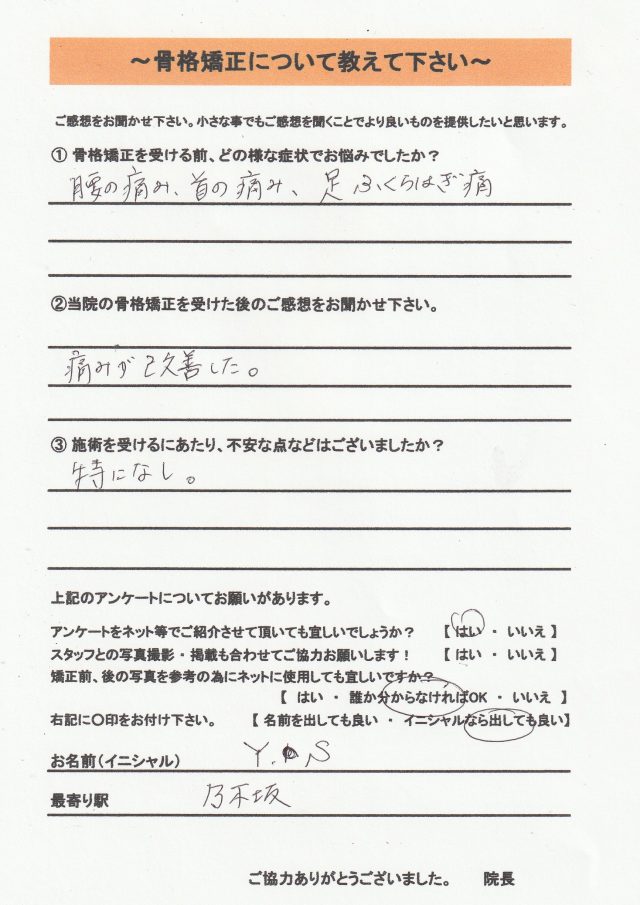 ～骨格矯正について教えて下さい～
ご感想をお聞かせ下さい。小さな事でもご感想を聞くことでより良いものを提供したいと思います。
① 骨格矯正を受ける前、どの様な症状でお悩みでしたか？
腰の痛み、首の痛み、足 ふくらはぎ痛
②当院の骨格矯正を受けた後のご感想をお聞かせ下さい。
痛みが改善した。
③ 施術を受けるにあたり、不安な点などはございましたか？
特になし。
上記のアンケートについてお願いがあります。
アンケートをネット等でご紹介させて頂いても宜しいでしょうか？ 【 はい ・ いいえ 】
スタッフとの写真撮影・掲載も合わせてご協力お願いします！ 【 はい ・ いいえ 】
矯正前、後の写真を参考の為にネットに使用しても宜しいですか？
【 はい ・ 誰か分からなければOK ・ いいえ 】
右記に〇印をお付け下さい。 【 名前を出しても良い ・ イニシャルなら出しても良い】
お名前（イニシャル） Y. S
最寄り駅 乃木坂
ご協力ありがとうございました。 院長